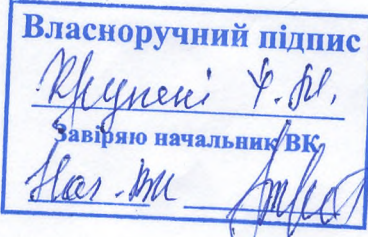 Власноручний підпис
Крупені Ф. М.
Завіряю начальник ВК
Нач. ВК